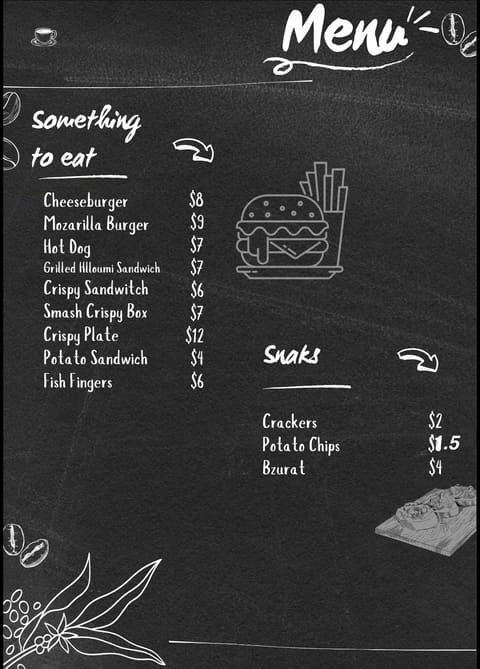 Menu
Something
to eat
Cheeseburger $8
Mozarilla Burger $9
Hot Dog $7
Grilled Hlloumi Sandwich $7
Crispy Sandwitch $6
Smash Crispy Box $7
Crispy Plate $12
Potato Sandwich $4
Fish Fingers $6
Snaks
Crackers $2
Potato Chips $1.5
Bzurat $4